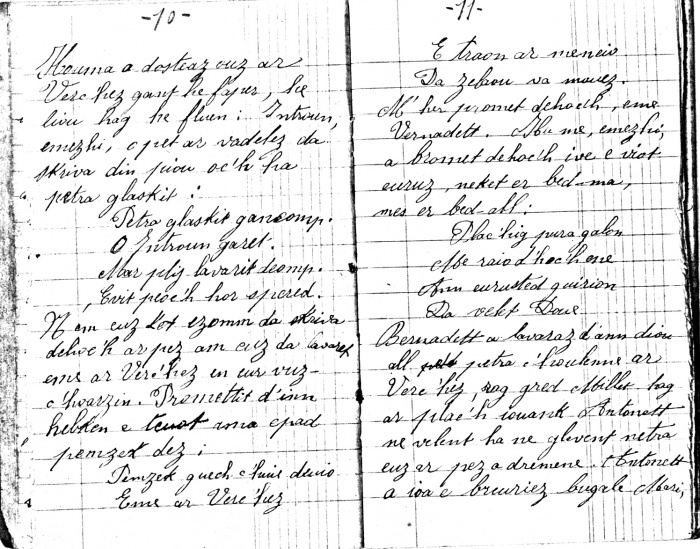 -10-
Houma a dosteaz ouz ar
Verc'hez gant he faper, he
liou hag he fluen: Introun,
emezhi, opet ar vadelez da
skriva din piou oc'h ha
petra glaskit:
Petra glaskit gancomp.
O Introun garet.
Mar plij lavarit deomp.
Evit peoc'h hor spered.
N'em euz ket ezomm da skriva
dehoc'h ar pez am euz da lavaret
eme ar Verc'hez en eur vuz-
c'hoarzin. Promettit d'inn
hebken e teuot ama epad
pemzek dez:
Pemzek guech c'huis deuio
Eme ar Verc'hez
-11-
E traon ar meneio
Da zelaou va mouez.
M'her promet dehoc'h, eme
Vernadett. Ha me, emezhi,
a bromet dehoc'h ive e viot
euruz, neket er bed-ma,
mes er bed-all:
Plac'hig pura galon
Me raio d'hoc'h ene
Ann eurusted guirion
Da velet Doue
Bernadett a lavaraz d'ann diou
all petra c'houlenne ar
Verc'hez, rag gred Millet hag
ar plac'h iouank Antonett
ne velent ha ne glevent netra
euz ar pez a dremene. Antonett
a ioa e breuriez bugale Mari,